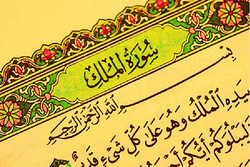 سُورَةُ الْمُلْكِ
بِسْمِ اللَّهِ الرَّحْمَٰنِ الرَّحِيمِ
بِيَدِهِ الْمُلْكُ وَهُوَ عَلَىٰ كُلِّ شَيْءٍ
لِيَبْلُوَكُمْ أَيُّكُمْ